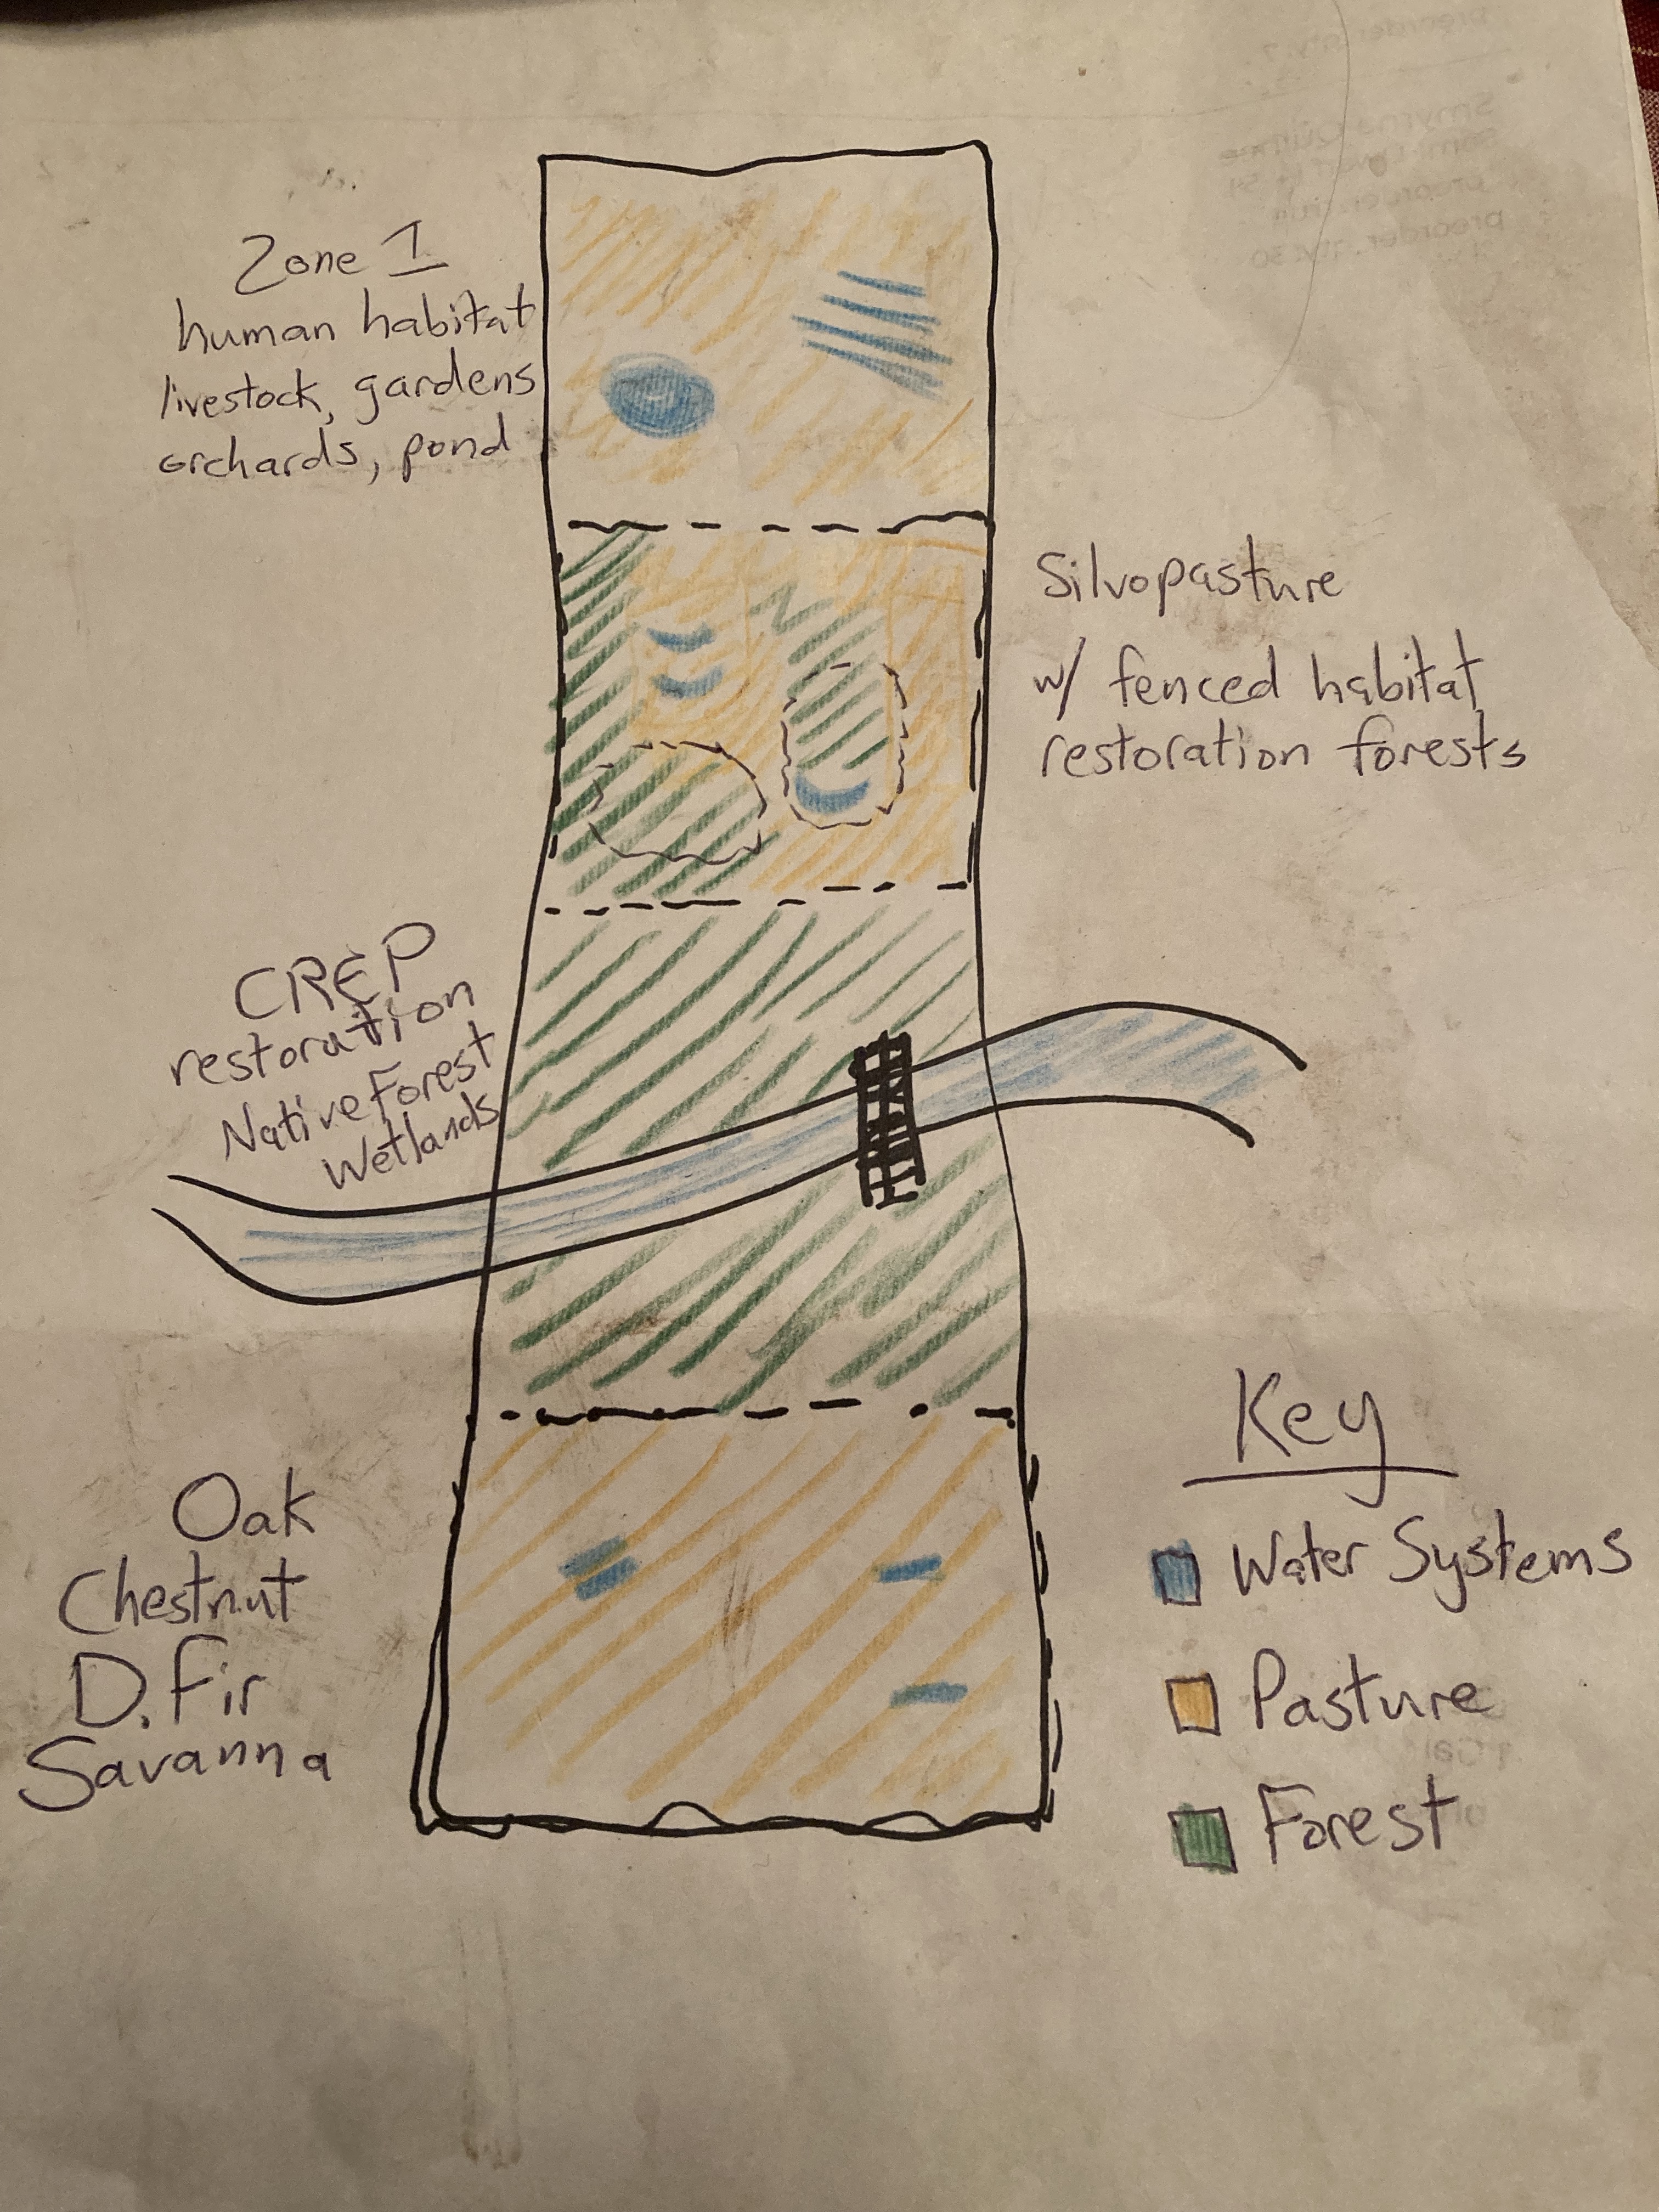 Zone 1
human habitat
livestock, gardens
orchards, pond
Silvopasture
w/ fenced habitat
restoration forests
CREP
restoration
Native Forest
Wetlands
Oak
Chestnut
D. Fir
Savanna
Key
Water Systems
Pasture
Forest